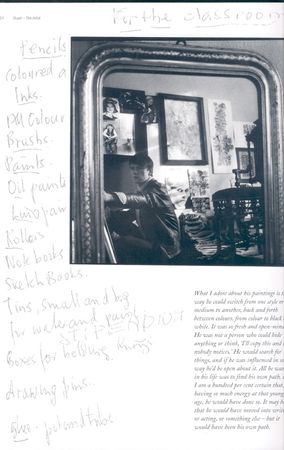 For the classroom
Pencils
Coloured a
Inks.
Brushs.
Paints.
Oil paints
Rollers
Note books
Sketch Books.
Tins, small and big
for water and paint
Boxes for holding
drawing pins.
glue -
What I adore about his paintings is t
way he could switch from one style or
medium to another, back and forth
between colours, from colour to black
white. It was so fresh and open-mind
He was not a person who could hide
anything or think, 'I'll copy this and
nobody notices.' He would search for
things, and if he was influenced in so
way he'd be open about it. All he wan
in his life was to find his own path,
I am a hundred per cent certain that,
having so much energy at that young
age, he would have done so. It may b
that he would have moved into writin
or acting, or something else – but it
would have been his own path.